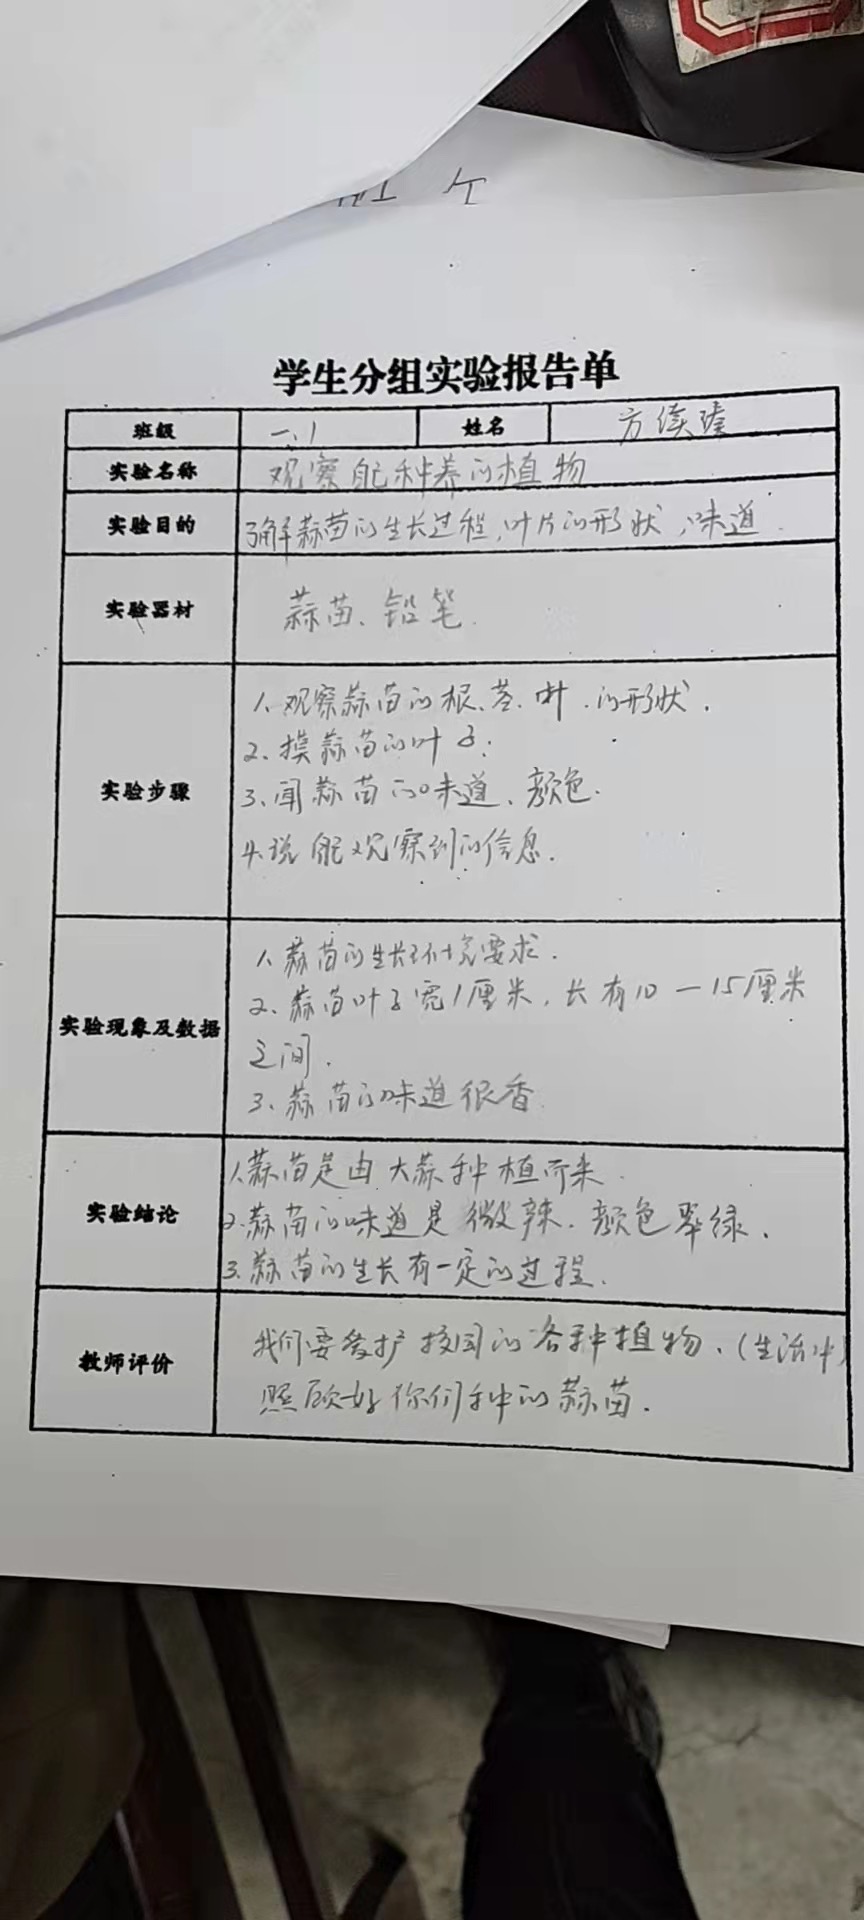 学生分组实验报告单
班级 一、1 姓名 方续
实验名称 观察自己种养的植物
实验目的 了解蒜苗的生长过程,叶片的形状,味道.
实验器材 蒜苗、铅笔.
实验步骤
1、观察蒜苗的根、茎、叶.的形状.
2、摸蒜苗的叶子;
3、闻蒜苗的味道、颜色.
4、说自己观察到的信息.
实验现象及数据
1、蒜苗的生长环境要求.
2、蒜苗叶子宽1厘米,长有10—15厘米
之间.
3、蒜苗的味道很香.
实验结论
1、蒜苗是由大蒜种植而来.
2、蒜苗的味道是微辣、颜色翠绿.
3、蒜苗的生长有一定的过程.
教师评价
我们要爱护校园的各种植物、(生活中)
照顾好你们种的蒜苗.